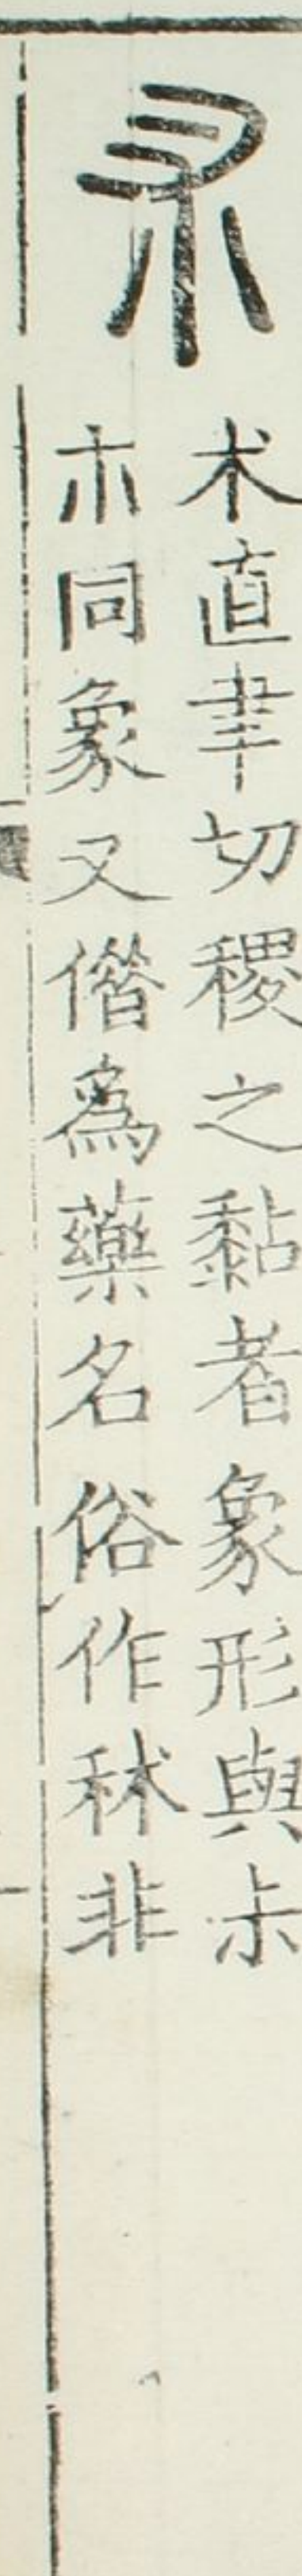 术
术直聿切稷之黏者象形與尗
朩同象又僣爲藥名俗作秫非